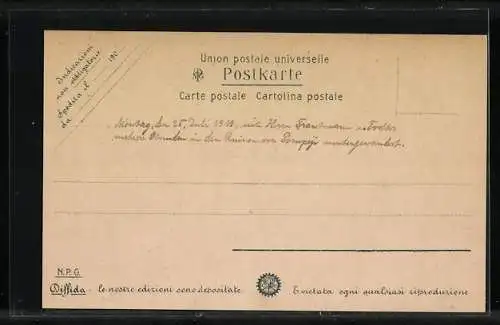 Indicazioni
non obbligatorie
Spedita il 190
da
Union postale universelle
Postkarte
Carte postale Cartolina postale
Montag, den 25. Juli 1910, mit Herrn
in den Ruinen von Pompeji
N.P.G.
Diffida - le nostre edizioni sono depositate
E vietata ogni qualsiasi riproduzione